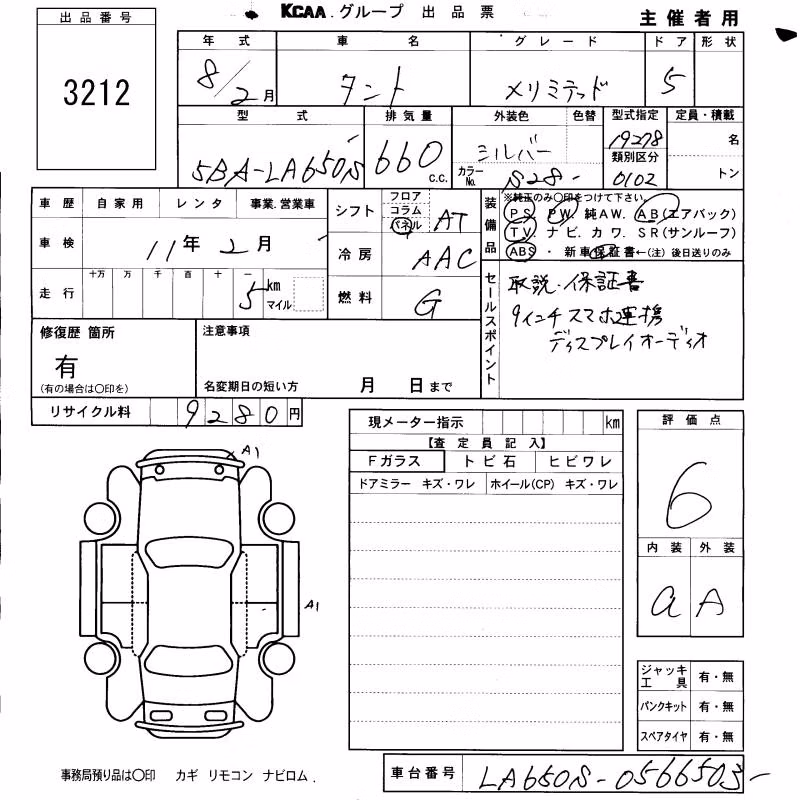 KCAA.グループ 出品票
主催者用
出品番号
3212
年式 車名 グレード ドア 形状
8/2月 タント メリミテッド 5
型式 排気量 外装色 色替 型式指定 定員・積載
5BA-LA650S 660 c.c. シルバー 19278 名
カラーNo. S28 類別区分 0102 トン
車歴 自家用 レンタ 事業.営業車
シフト フロア コラム パネル AT
装備品 ※純正のみ○印をつけて下さい。
PS PW 純AW. AB(エアバック)
TV ナビ. カワ. SR(サンルーフ)
ABS ・ 新車保証書←(注) 後日送りのみ
車検 11年 2月
冷房 AAC
走行 十万 万 千 百 十 一 5 km マイル
燃料 G
セールスポイント 取説・保証書
9インチスマホ連携
ディスプレイオーディオ
修復歴 箇所
有
(有の場合は○印を)
注意事項
名変期日の短い方 月 日まで
リサイクル料 9280円
現メーター指示 km
【査定員記入】
Fガラス トビ石 ヒビワレ
ドアミラー キズ・ワレ ホイール(CP) キズ・ワレ
評価点
6
内装 外装
a A
A1
A1
ジャッキ 工具 有・無
パンクキット 有・無
スペアタイヤ 有・無
事務局預り品は○印 カギ リモコン ナビロム.
車台番号 LA650S-0566503